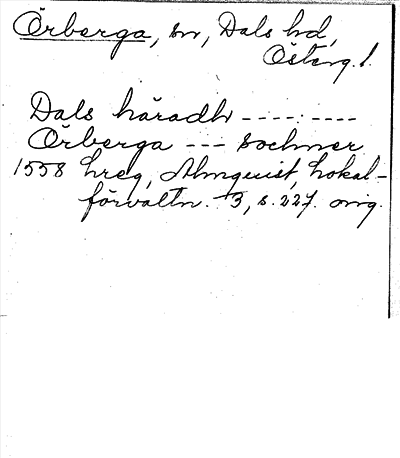 Örberga, sn, Dals hd,
Österg. l.
Dals häradh --------
Örberga --- sochner
1558 hreg, Almquist, Lokal-
förvaltn. 3, s. 227. orig.